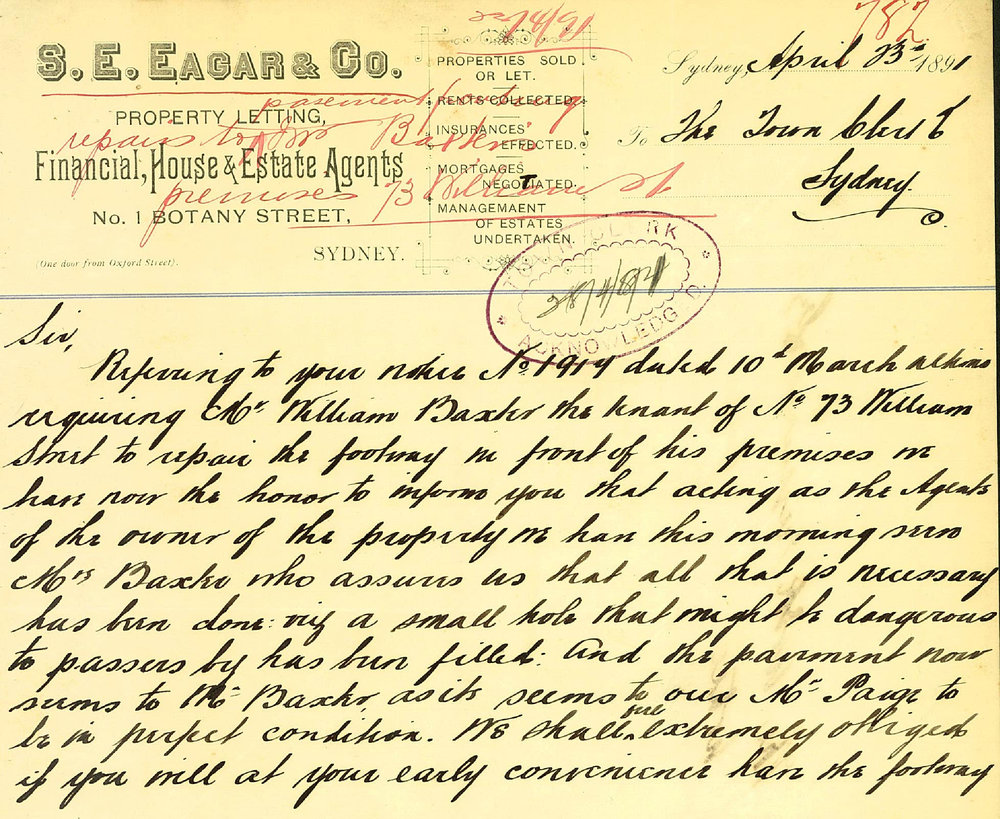 782
28/4/91
S. E. EAGAR & CO.
PROPERTY LETTING,
Financial, House & Estate Agents
No. 1 BOTANY STREET,
SYDNEY.
(One door from Oxford Street).
PROPERTIES SOLD
OR LET.
RENTS COLLECTED.
INSURANCES
EFFECTED.
MORTGAGES
NEGOTIATED.
MANAGEMAENT
OF ESTATES
UNDERTAKEN.
pavement fronting
repairs to Mr Baxter's
premises 73 William St
Sydney, April 23rd 1891
To The Town Clerk
Sydney.
TOWN CLERK
ACKNOWLEDG'D.
Sir,
Referring to your notice No 1919 dated 10th March ultimo
requiring Mr William Baxter the tenant of No 73 William
Street to repair the footway in front of his premises we
have now the honor to inform you that acting as the Agents
of the owner of the property we have this morning seen
Mrs Baxter who assures us that all that is necessary
has been done: viz a small hole that might be dangerous
to passers by has been filled: And the pavement now
seems to Mr Baxter, as it seems to our Mr Paige to
be in perfect condition. We shall feel extremely obliged
if you will at your early convenience have the footway